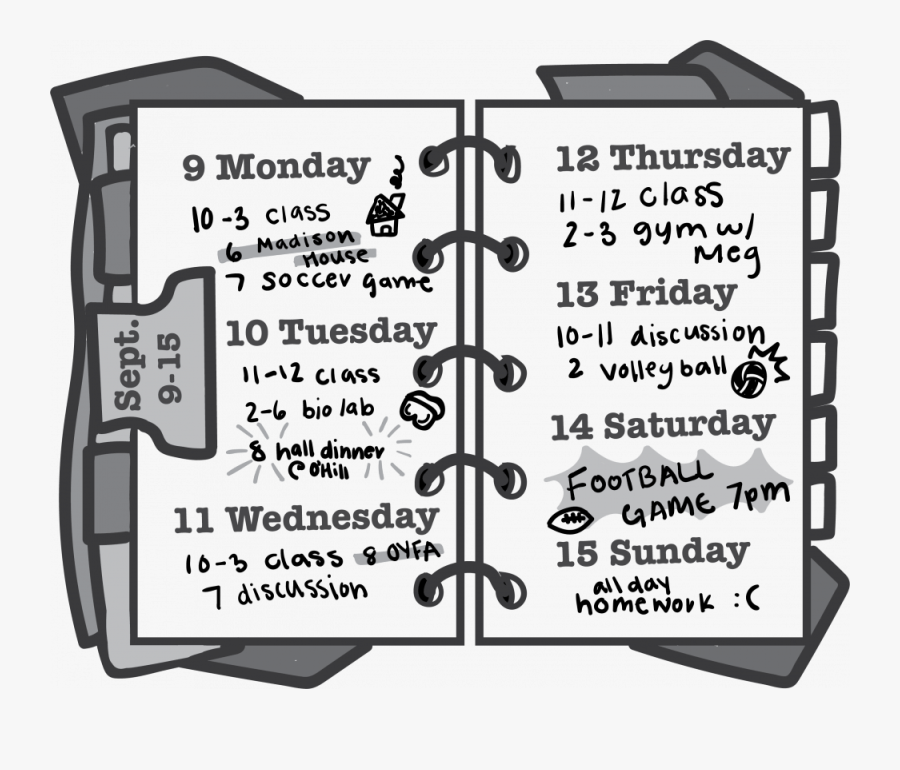 Sept.
9-15
9 Monday
10-3 class
6 Madison
House
7 soccer game
10 Tuesday
11-12 class
2-6 bio lab
8 hall dinner
@ O'Hill
11 Wednesday
10-3 class 8 OYFA
7 discussion
12 Thursday
11-12 class
2-3 gym w/
Meg
13 Friday
10-11 discussion
2 volleyball
14 Saturday
FOOTBALL
GAME 7pm
15 Sunday
all day
homework :(